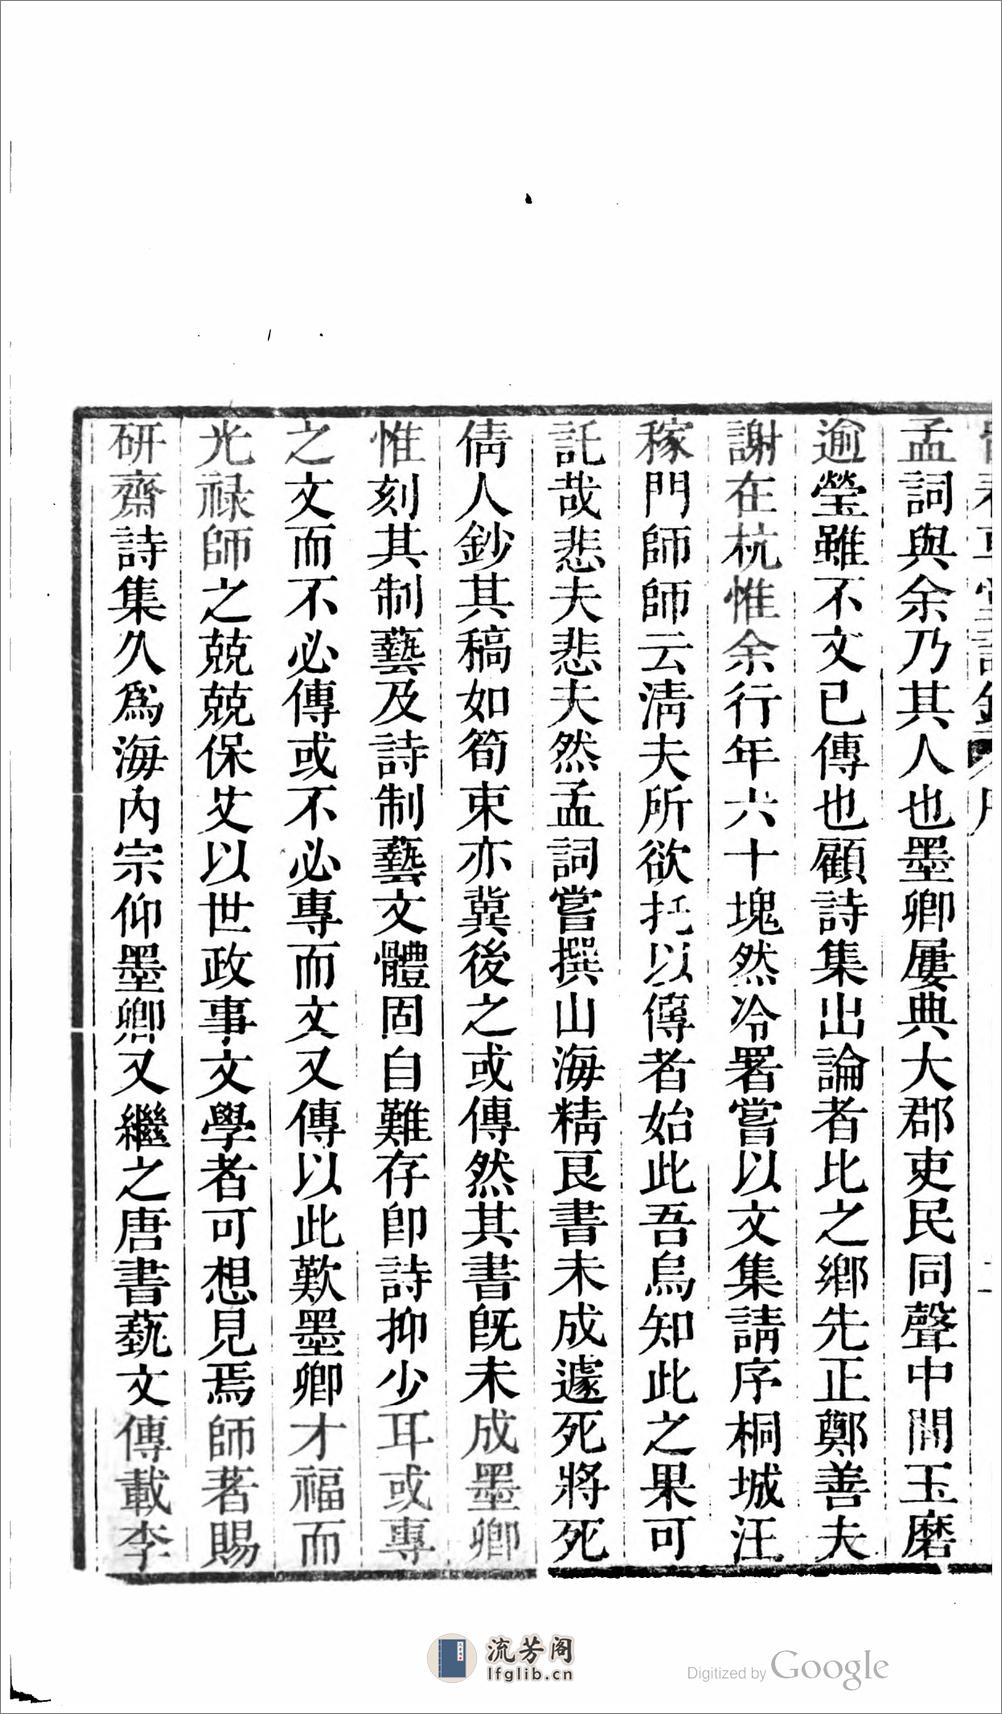 孟詞與余乃其人也墨卿屢典大郡吏民同聲中間玉磨
逾瑩雖不文已傳也顧詩集出論者比之鄉先正鄭善夫
謝在杭惟余行年六十塊然冷署嘗以文集請序桐城汪
稼門師師云淸夫所欲托以傳者始此吾烏知此之果可
託哉悲夫悲夫然孟詞嘗撰山海精艮書未成遽死將死
倩人鈔其稿如筍束亦冀後之或傳然其書旣未成墨卿
惟刻其制藝及詩制藝文體固自難存卽詩抑少耳或專
之文而不必傳或不必專而文又傳以此歎墨卿才福而
光祿師之兢兢保艾以世政事文學者可想見焉師著賜
研齋詩集久爲海內宗仰墨卿又繼之唐書藝文傳載李
流芳阁
lfglib.cn
Digitized by Google